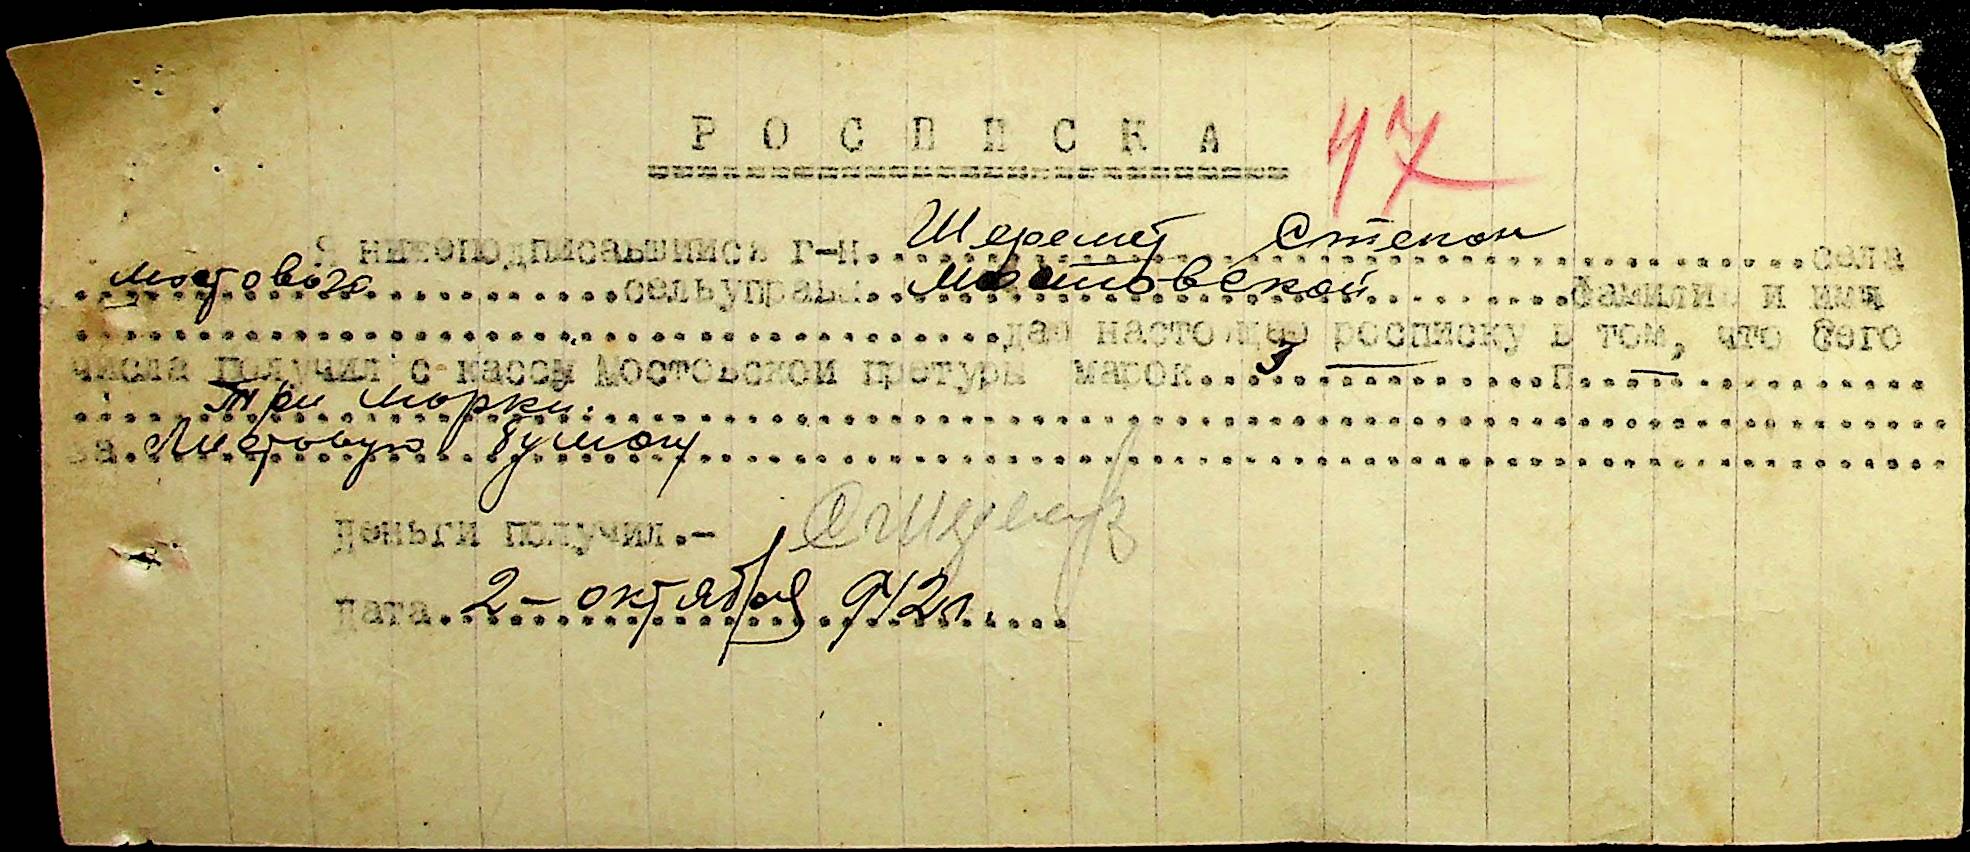 Р О С П И С К А 47
Я нижеподписавшийся г-н. Шеремет Степан села
Мостового сельуправы Мостовской фамилия и имя
даю настоящую росписку в том, что сего
числа получил с кассы Мостовской претуры марок 3 — п. —
Три марки.
за Листовую бумагу
Деньги получил.-
Дата 2 - октября 942 г.